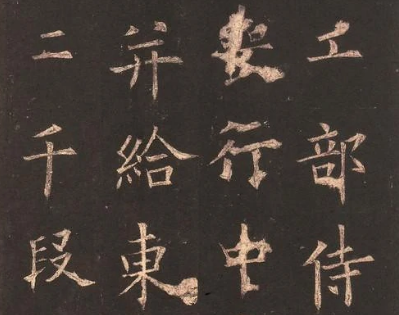 工部侍
行中
并給東
二千段